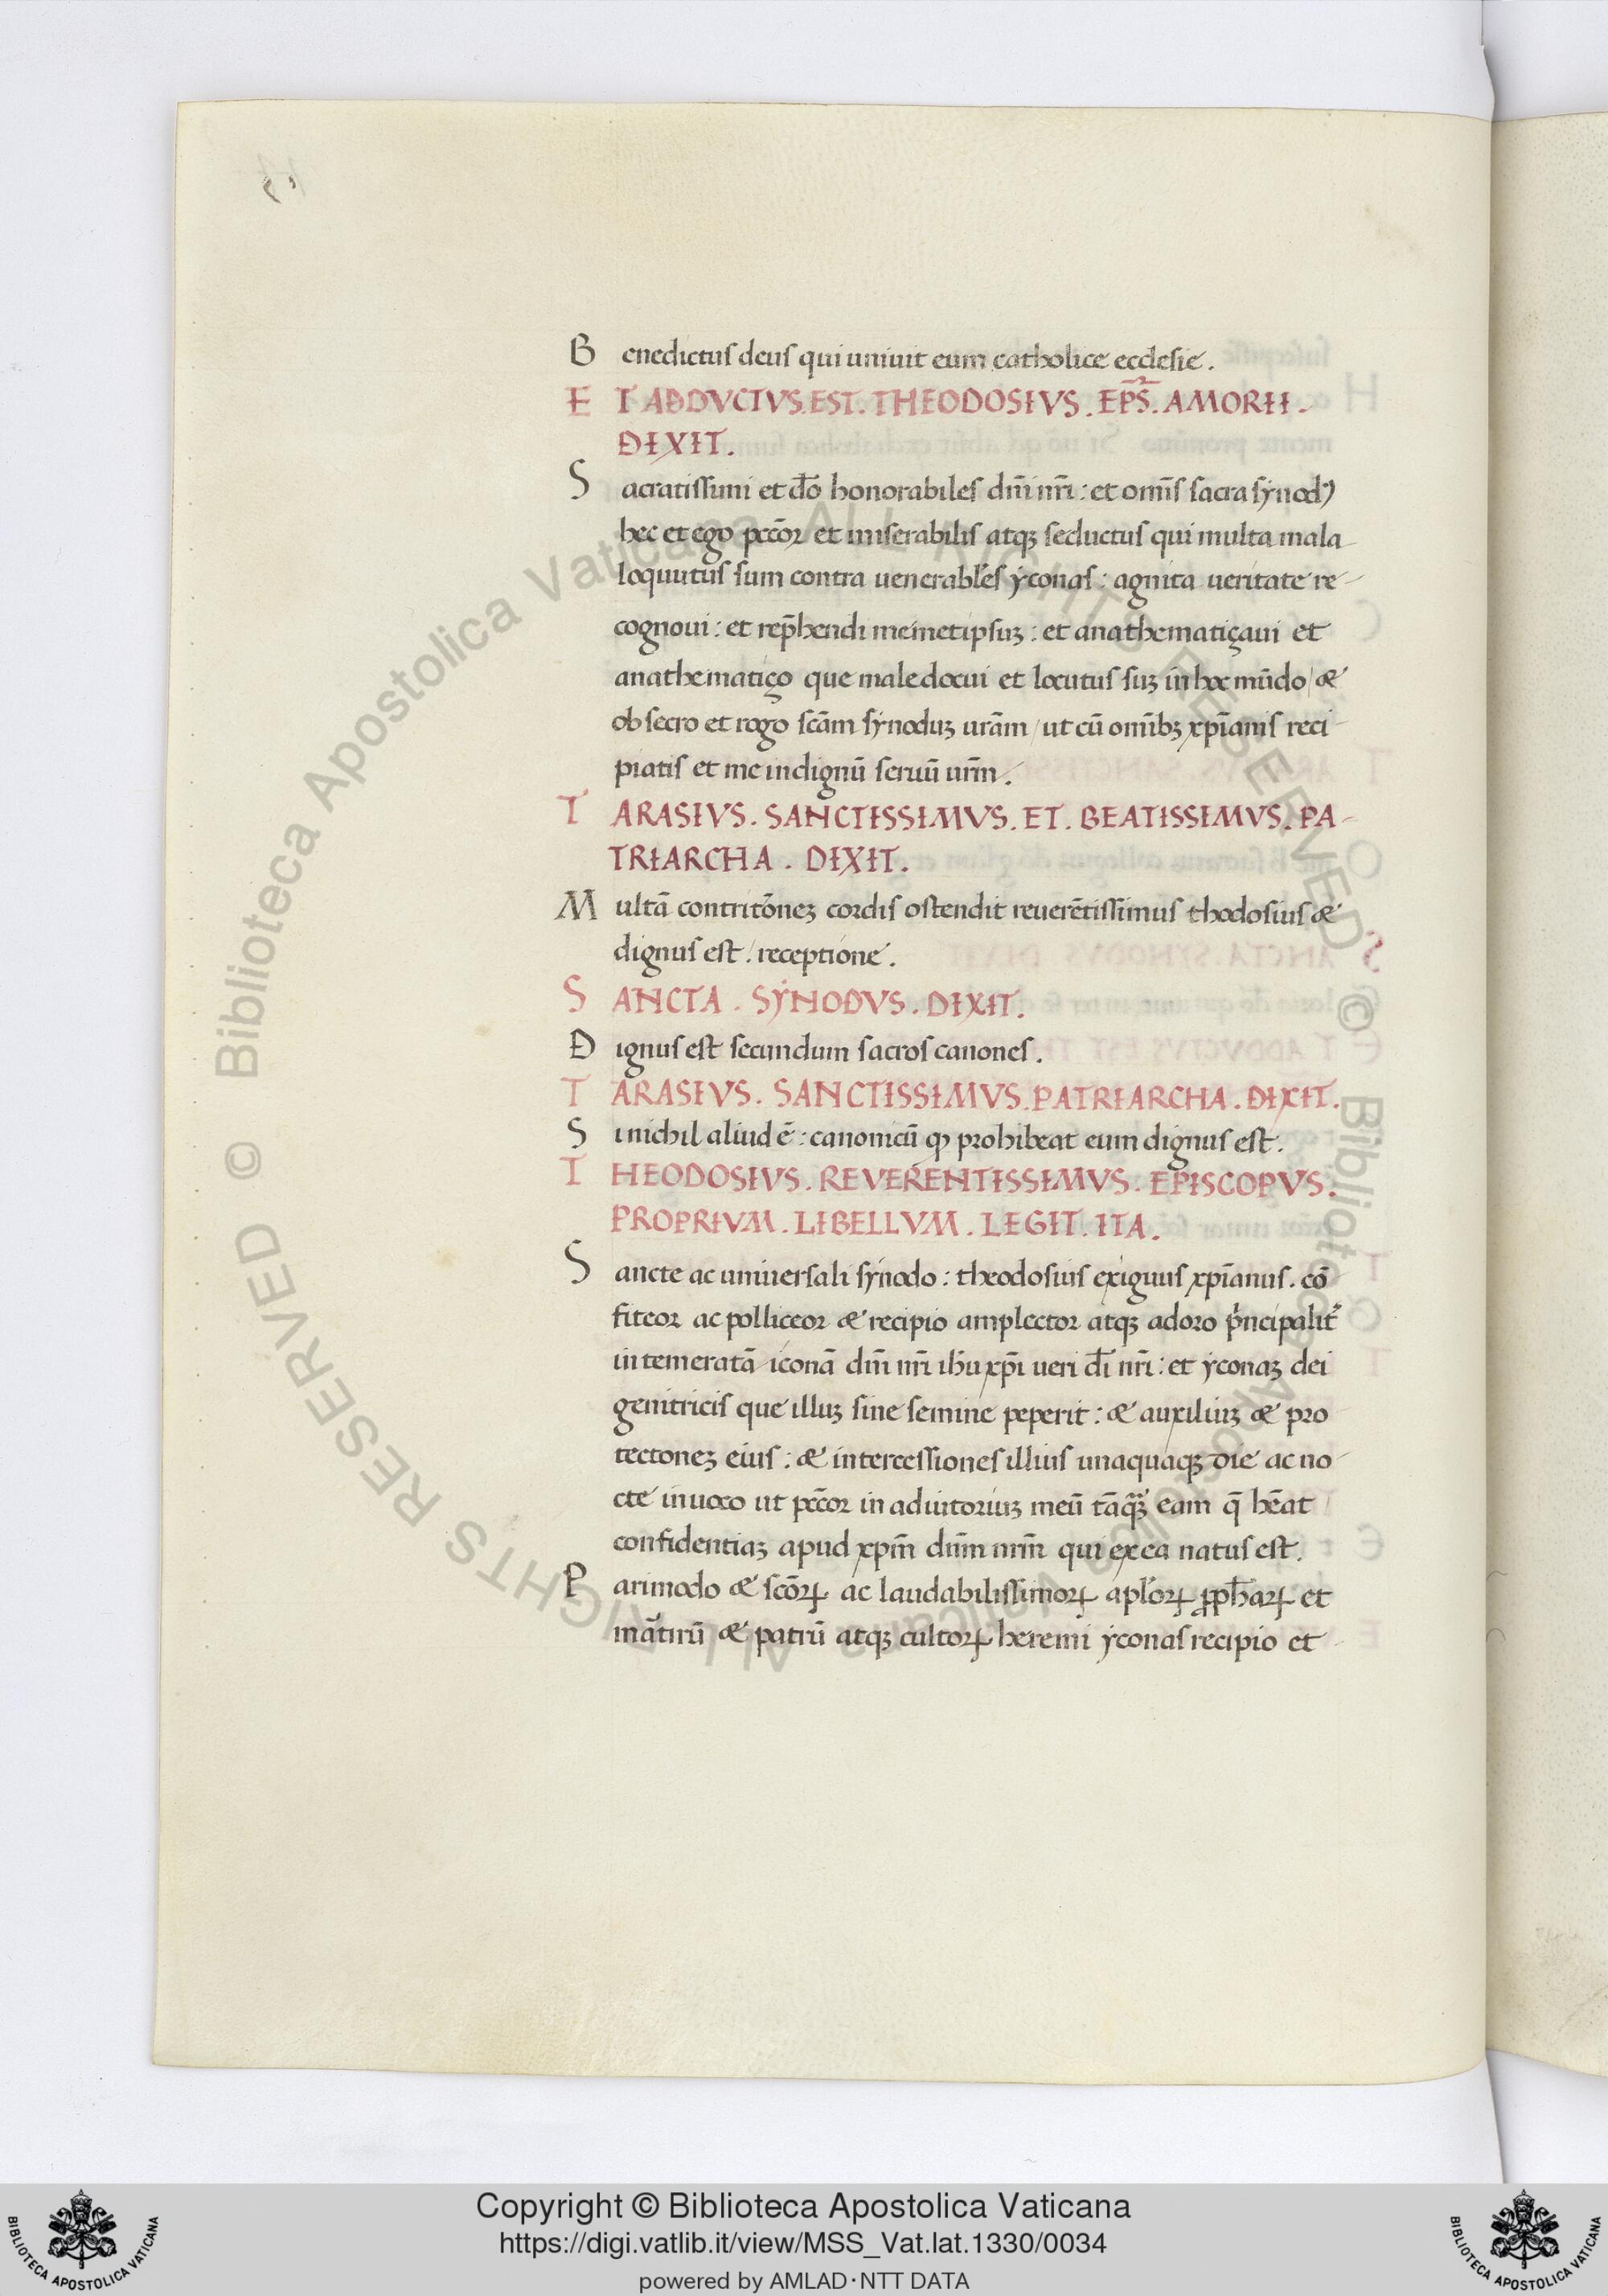 Benedictus deus qui univit eum catholice ecclesie.
ET ADDVCTVS. EST. THEODOSIVS. EP̅S. AMORII.
DIXIT.
Sacratissimi et do̅ honorabiles dn̅i nr̅i: et omn̅s sacra synodꝰ
hec et ego pcc̅or et miserabilis atqꝫ seductus qui multa mala
loquutus sum contra venerabl̅es yconas: agnita veritate re-
cognovi: et rep̅hendi memetipsuꝫ: et anathematiçavi et
anathematiço que male docui et locutus suꝫ in hoc mu̅do / æ
obsecro et rogo sca̅m synoduꝫ vra̅m / ut cu̅ omn̅ibꝫ xpi̅anis reci-
piatis et me indignu̅ servu̅ vr̅m.
TARASIVS. SANCTISSIMVS. ET. BEATISSIMVS. PA-
TRIARCHA. DIXIT.
Multa̅ contrito̅neꝫ cordis ostendit revere̅tissimus thodosius æ
dignus est / receptione.
SANCTA. SYNODVS. DIXIT.
Dignus est secundum sacros canones.
TARASIVS. SANCTISSIMVS. PATRIARCHA. DIXIT.
Si nichil aliud e̅: canonicu̅ ꝙ prohibeat eum dignus est.
THEODOSIVS. REVERENTISSIMVS. EPISCOPVS.
PROPRIVM. LIBELLVM. LEGIT. ITA.
Sancte ac universali synodo: theodosius exiguus xpi̅anus. co̅
fiteor ac polliceor æ recipio amplector atqꝫ adoro p̍ncipalit̅
intemerata̅ icona̅ dn̅i nr̅i ih̅u xp̅i veri di̅ nr̅i: et yconaꝫ dei
genitricis que illuꝫ sine semine peperit: æ auxiliuꝫ æ pro
tectoneꝫ eius: æ intercessiones illius unaquaqꝫ die ac no-
cte invoco ut pcc̅or in adiutoriuꝫ meu̅ ta̅qꝫ eam q̅ he̅at
confidentiaꝫ apud xpm̅ dn̅m nr̅m qui ex ea natus est.
Parimodo æ sco̅ꝝ ac laudabilissimoꝝ apl̅oꝝ ꝓph̅aꝝ et
ma̅tiru̅ æ patru̅ atqꝫ cultoꝝ heremi yconas recipio et
Copyright © Biblioteca Apostolica Vaticana
https://digi.vatlib.it/view/MSS_Vat.lat.1330/0034
powered by AMLAD·NTT DATA
BIBLIOTECA APOSTOLICA VATICANA
BIBLIOTECA APOSTOLICA VATICANA
© Biblioteca Apostolica Vaticana ALL RIGHTS RESERVED
© Biblioteca Apostolica Vaticana ALL RIGHTS RESERVED